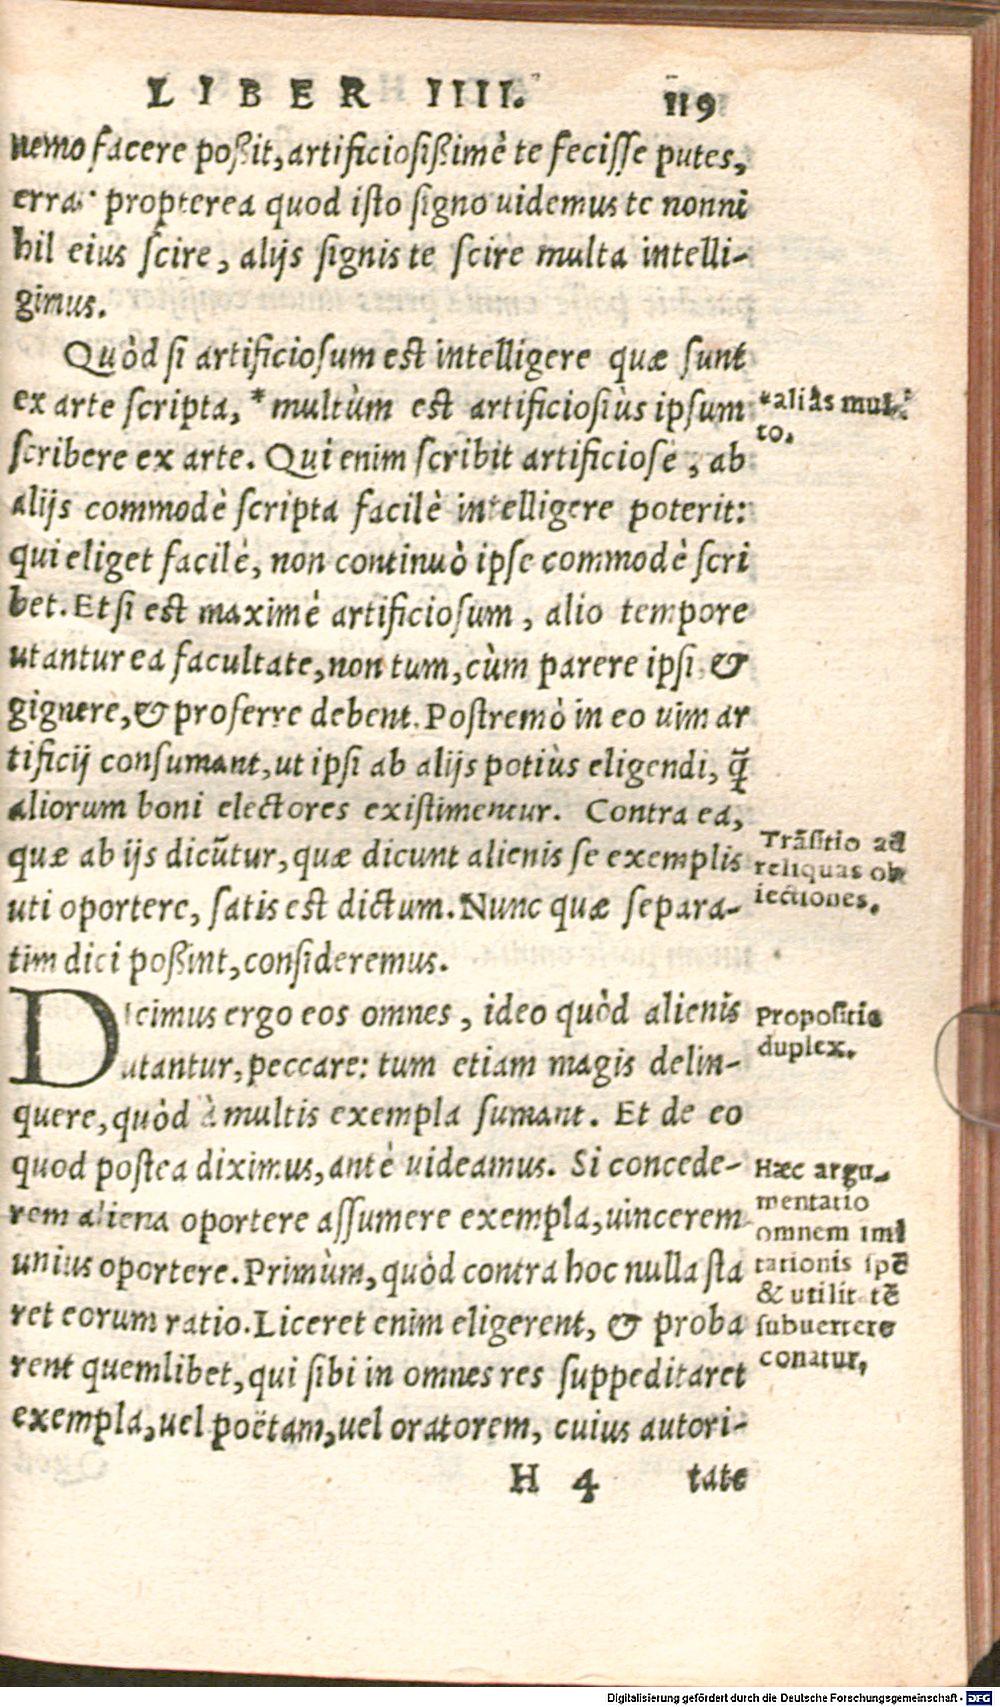 LIBER IIII. 119
nemo facere poßit, artificiosißimè te fecisse putes,
erra: propterea quod isto signo uidemus te nonni
hil eius scire, alijs signis te scire multa intelli-
gimus.
Quòd si artificiosum est intelligere quæ sunt
ex arte scripta, * multùm est artificiosiùs ipsum
*aliâs mul-
to.
scribere ex arte. Qui enim scribit artificiose, ab
alijs commodè scripta facilè intelligere poterit:
qui eliget facilè, non continuò ipse commodè scri
bet. Et si est maximè artificiosum, alio tempore
utantur ea facultate, non tum, cùm parere ipsi &
gignere, & proferre debent. Postremò in eo uim ar
tificij consumant, ut ipsi ab alijs potiùs eligendi, q̃
aliorum boni electores existimentur. Contra ea,
quæ ab ijs dicũtur, quæ dicunt alienis se exemplis
Trãsitio ad
reliquas ob
iectiones.
uti oportere, satis est dictum. Nunc quæ separa-
tim dici poßint, consideremus.
Dicimus ergo eos omnes, ideo quòd alienis
Propositio
duplex.
utantur, peccare: tum etiam magis delin-
quere, quòd à multis exempla sumant. Et de eo
quod postea diximus, antè uideamus. Si concede-
Hæc argu-
mentatio
omnem imi
tationis spẽ
& utilitatẽ
subuertere
conatur,
rem aliena oportere assumere exempla, uincerem
unius oportere. Primùm, quòd contra hoc nulla sta
ret eorum ratio. Liceret enim eligerent, & proba
rent quemlibet, qui sibi in omnes res suppeditaret
exempla, uel poëtam, uel oratorem, cuius autori-
H 4 tate
Digitalisierung gefördert durch die Deutsche Forschungsgemeinschaft - DFG